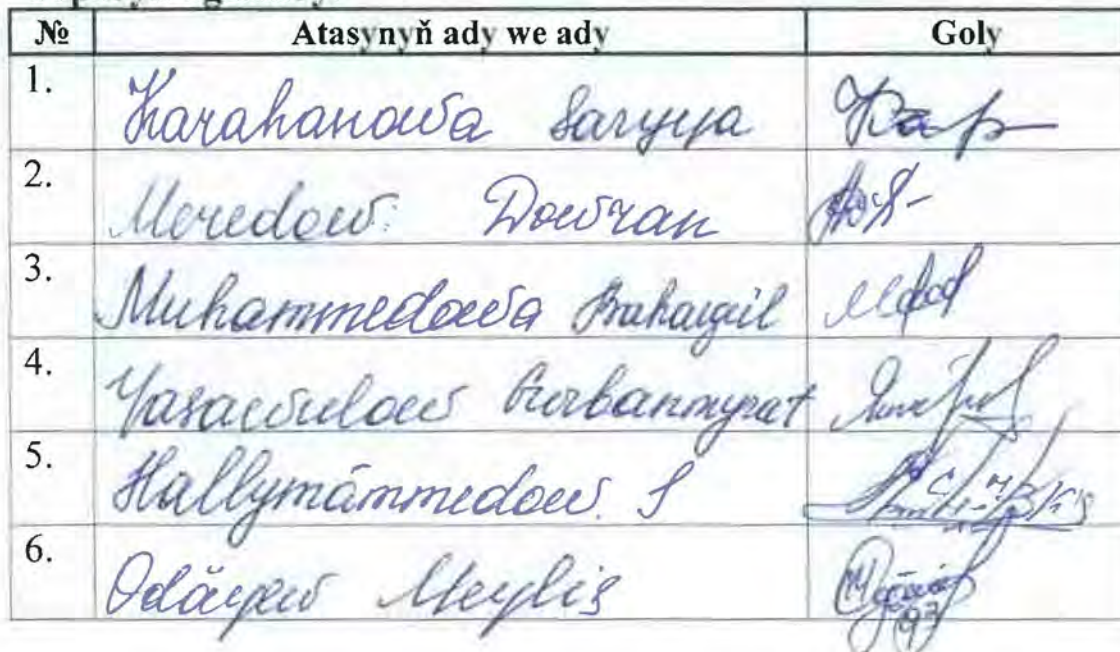 № Atasynyň ady we ady Goly
1. Karahanowa Saryýa
2. Meredow Döwran
3. Muhammedowa Bahargül
4. Ýasawulow Gurbanmyrat
5. Hallymämmedow S
6. Odäýew Meylis